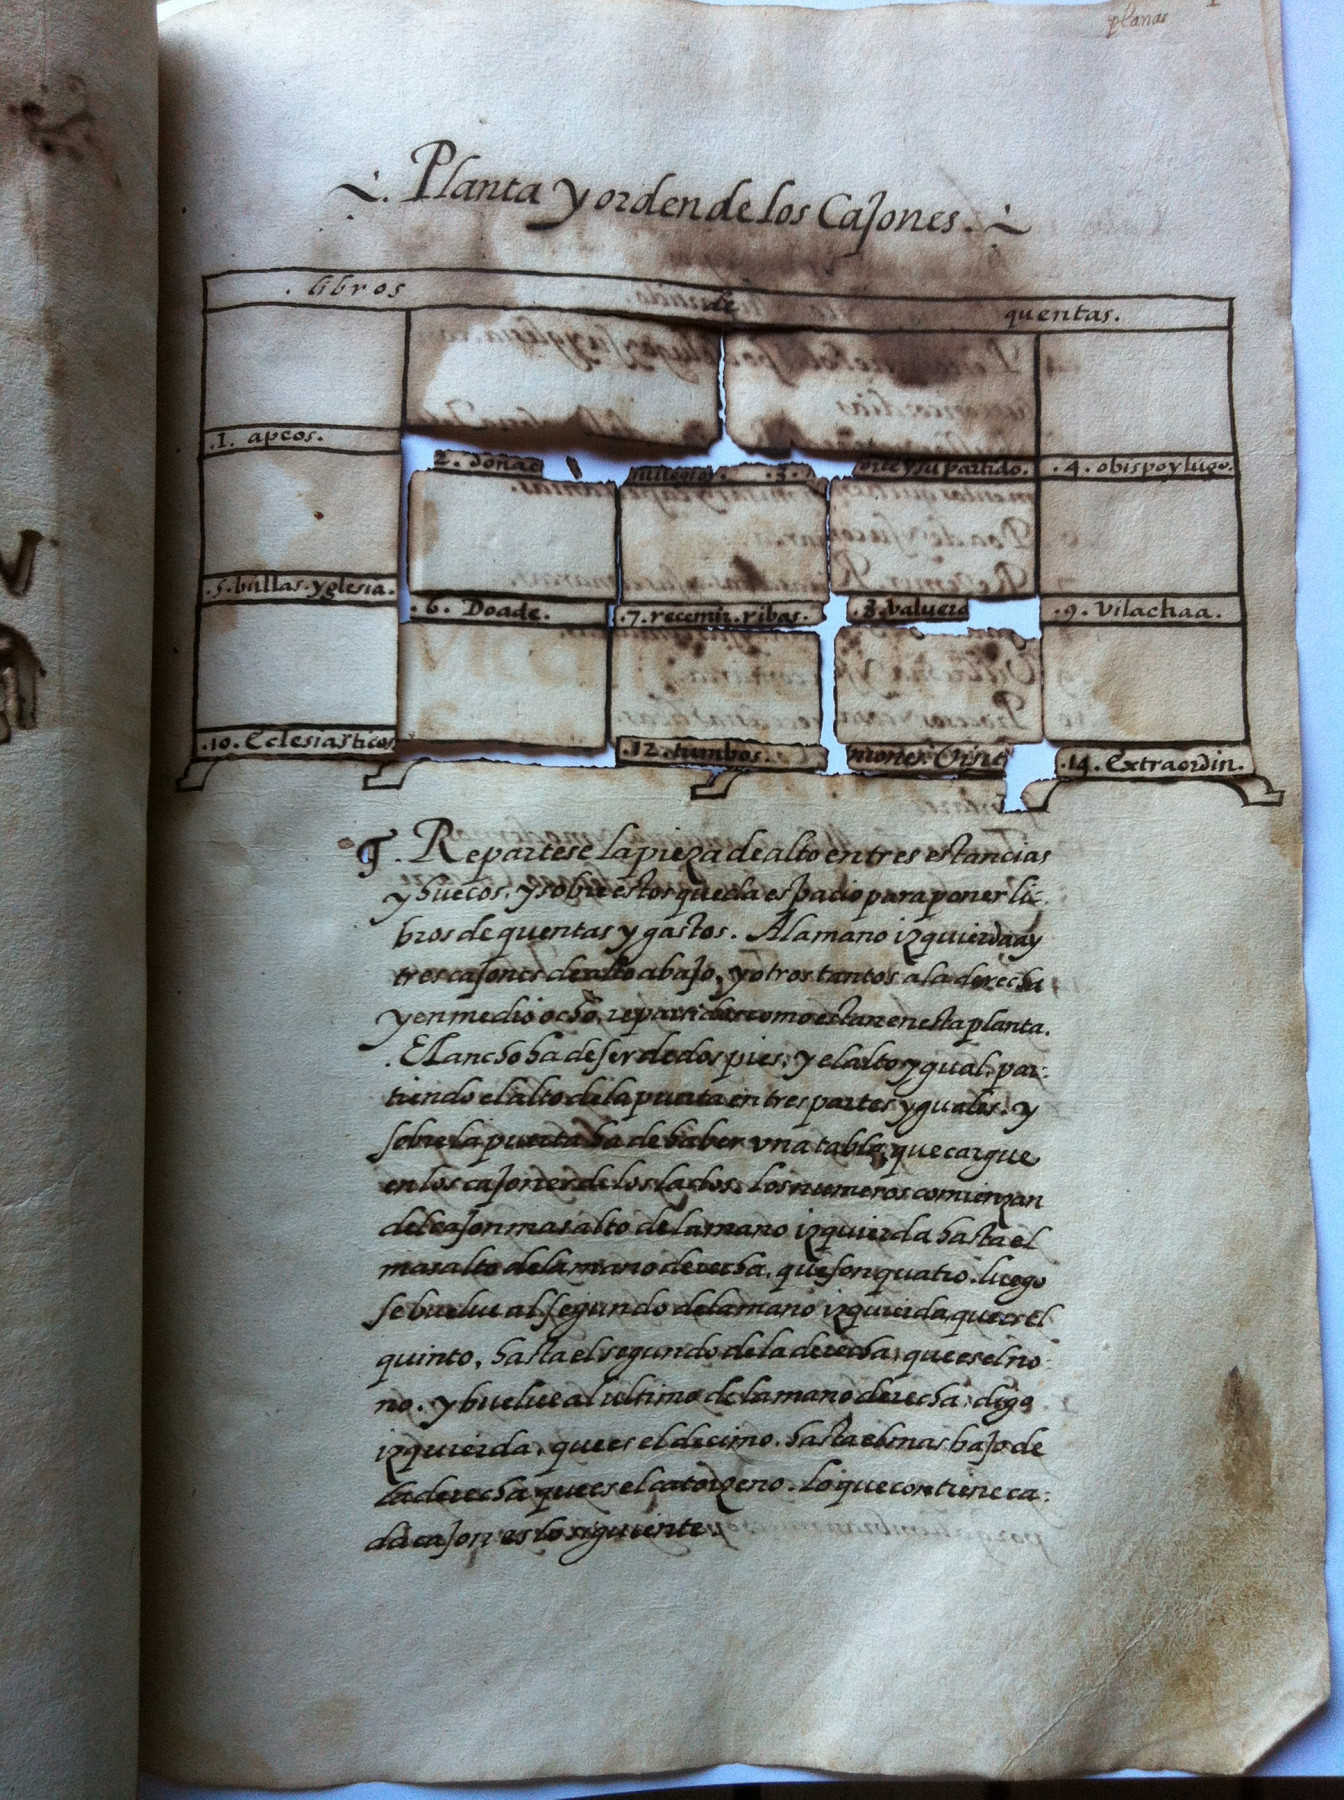 planas
Planta y orden de los Cajones.
. libros de quentas.
.1. apeos.
2. donac
nuueros. .3.
orte y su partido.
.4. obispo y lugo.
.5. bullas. yglesia.
.6. Doade.
.7. recemir. ribas.
.8. valuera
.9. Vilachaa.
.10. Eclesiasticos
.12. tumbos.
niones. Visit
.14. Extraordin.
. Repartese la pieza de alto en tres estancias
y huecos. y sobre estos queda espacio para poner li-
bros de quentas y gastos. A la mano izquierda ay
tres cajones de alto abajo, y otros tantos a la derecha
y en medio ocho, repartidos como estan en esta planta.
. El ancho ha de ser de dos pies, y el alto ygual, par-
tiendo el alto de la puerta en tres partes yguales. y
sobre la puerta ha de haber vna tabla, que cargue
en los cajones de los lados. los numeros comienzan
del cajon mas alto de la mano izquierda hasta el
mas alto de la mano derecha, que son quatro. luego
se buelue al segundo de la mano izquierda, que es el
quinto, hasta el segundo de la derecha, que es el no-
no. y buelue al ultimo de la mano derecha, digo
izquierda, que es el decimo. hasta el mas bajo de
la derecha que es el catorzeno. lo que contiene ca-
da cajon es lo siguiente.